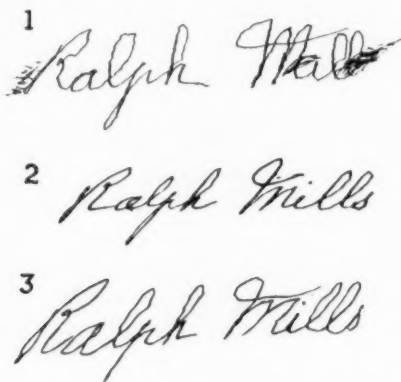 1
Ralph
2
Ralph Mills
3
Ralph Mills